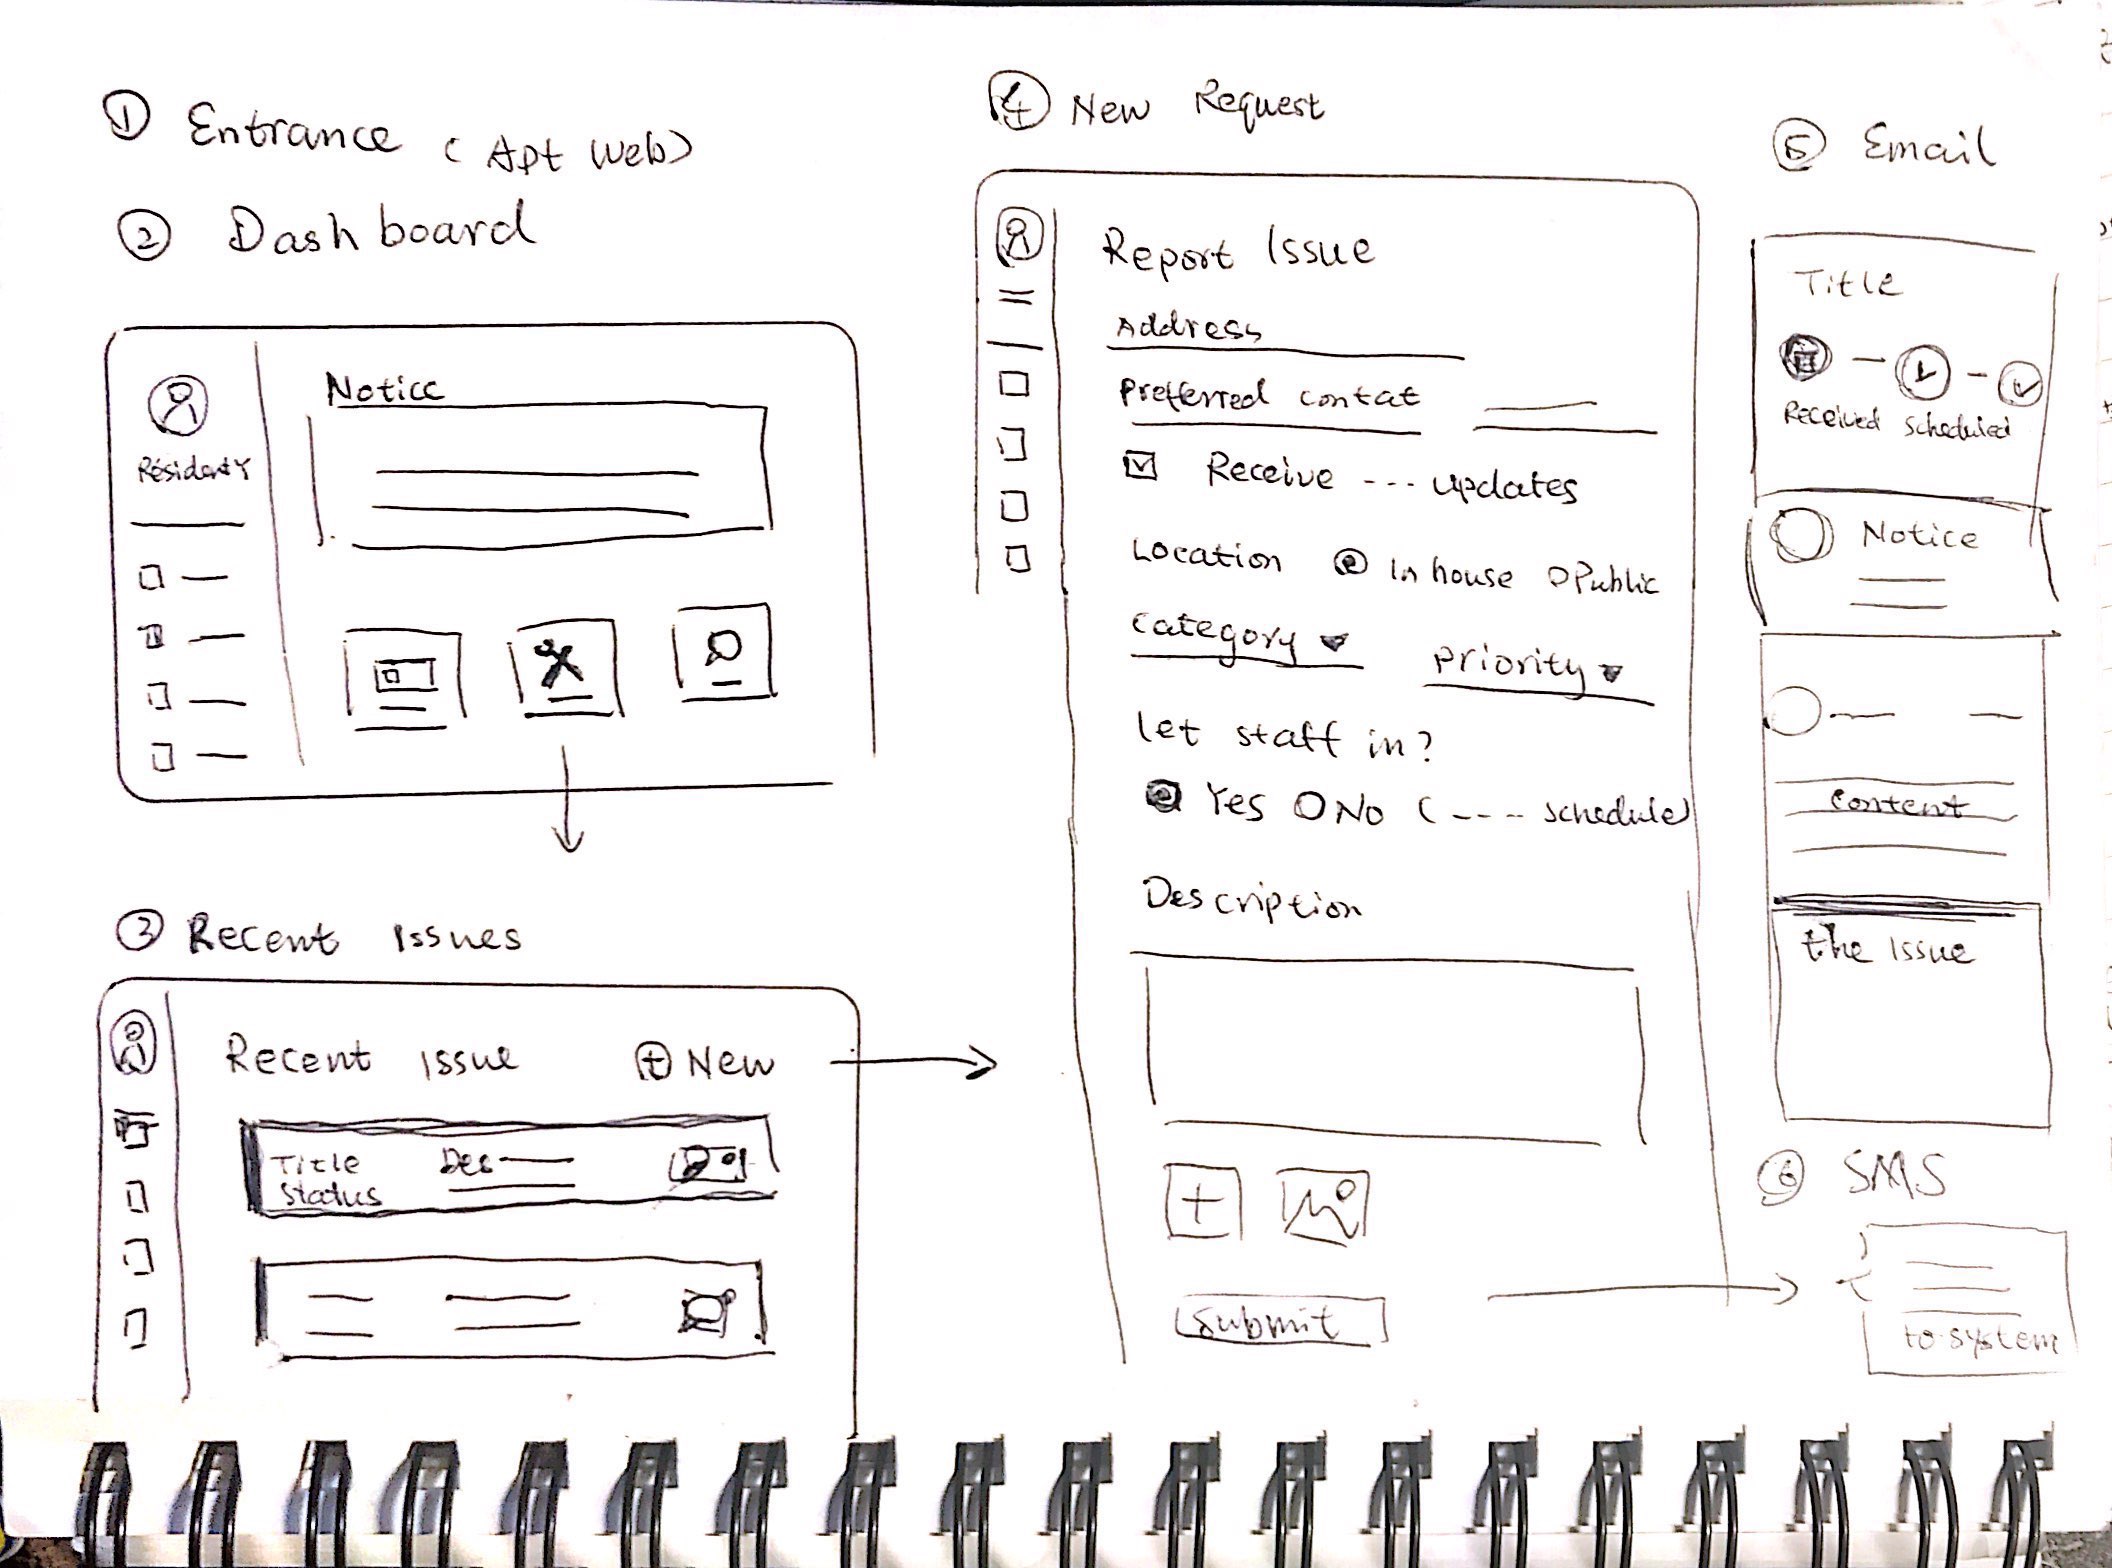 ① Entrance (Apt Web)
② Dashboard
Notice
Resident Y
③ Recent Issues
Recent Issue ⊕ New
Title Des
Status
④ New Request
Report Issue
Address
Preferred contat
☑ Receive --- updates
Location ◉ In house ○ Public
Category ▼ Priority ▼
let staff in?
◉ Yes ○ No (---- schedule)
Description
+
Submit
⑤ Email
Title
Received Scheduled
Notice
Content
the Issue
⑥ SMS
to system